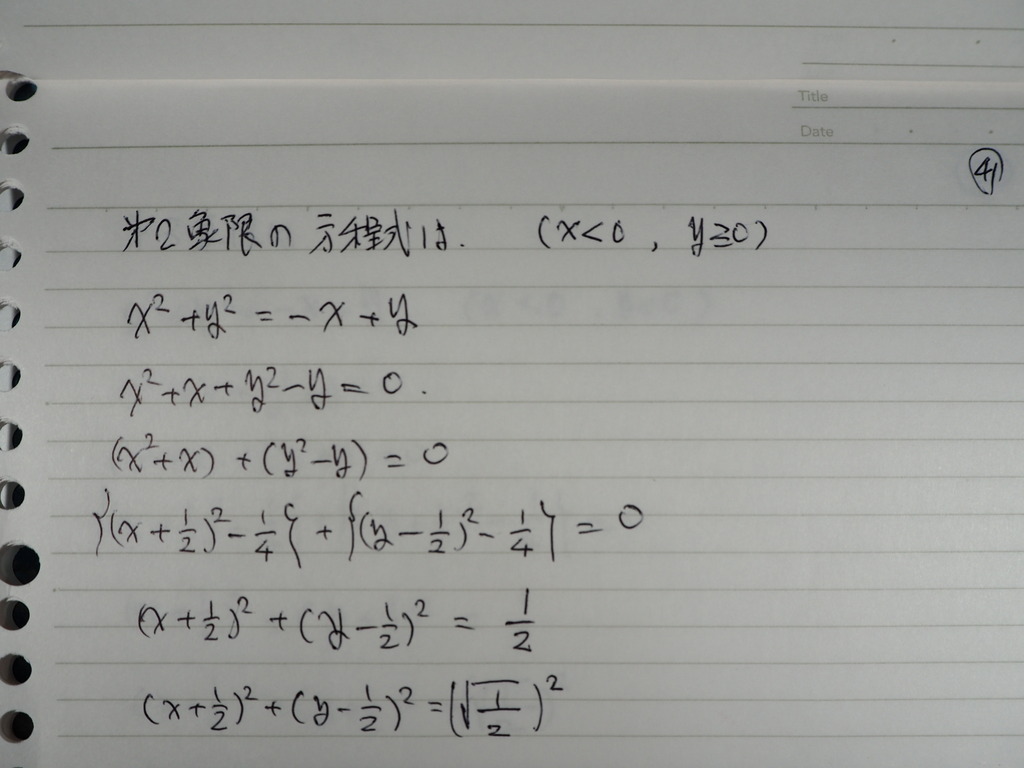 Title
Date
④
第2象限の方程式は. (x<0, y≥0)
x²+y² = -x+y
x²+x+y²-y=0.
(x²+x)+(y²-y)=0
{(x+1/2)²-1/4}+{(y-1/2)²-1/4}=0
(x+1/2)²+(y-1/2)²=1/2
(x+1/2)²+(y-1/2)²=(√(1/2))²